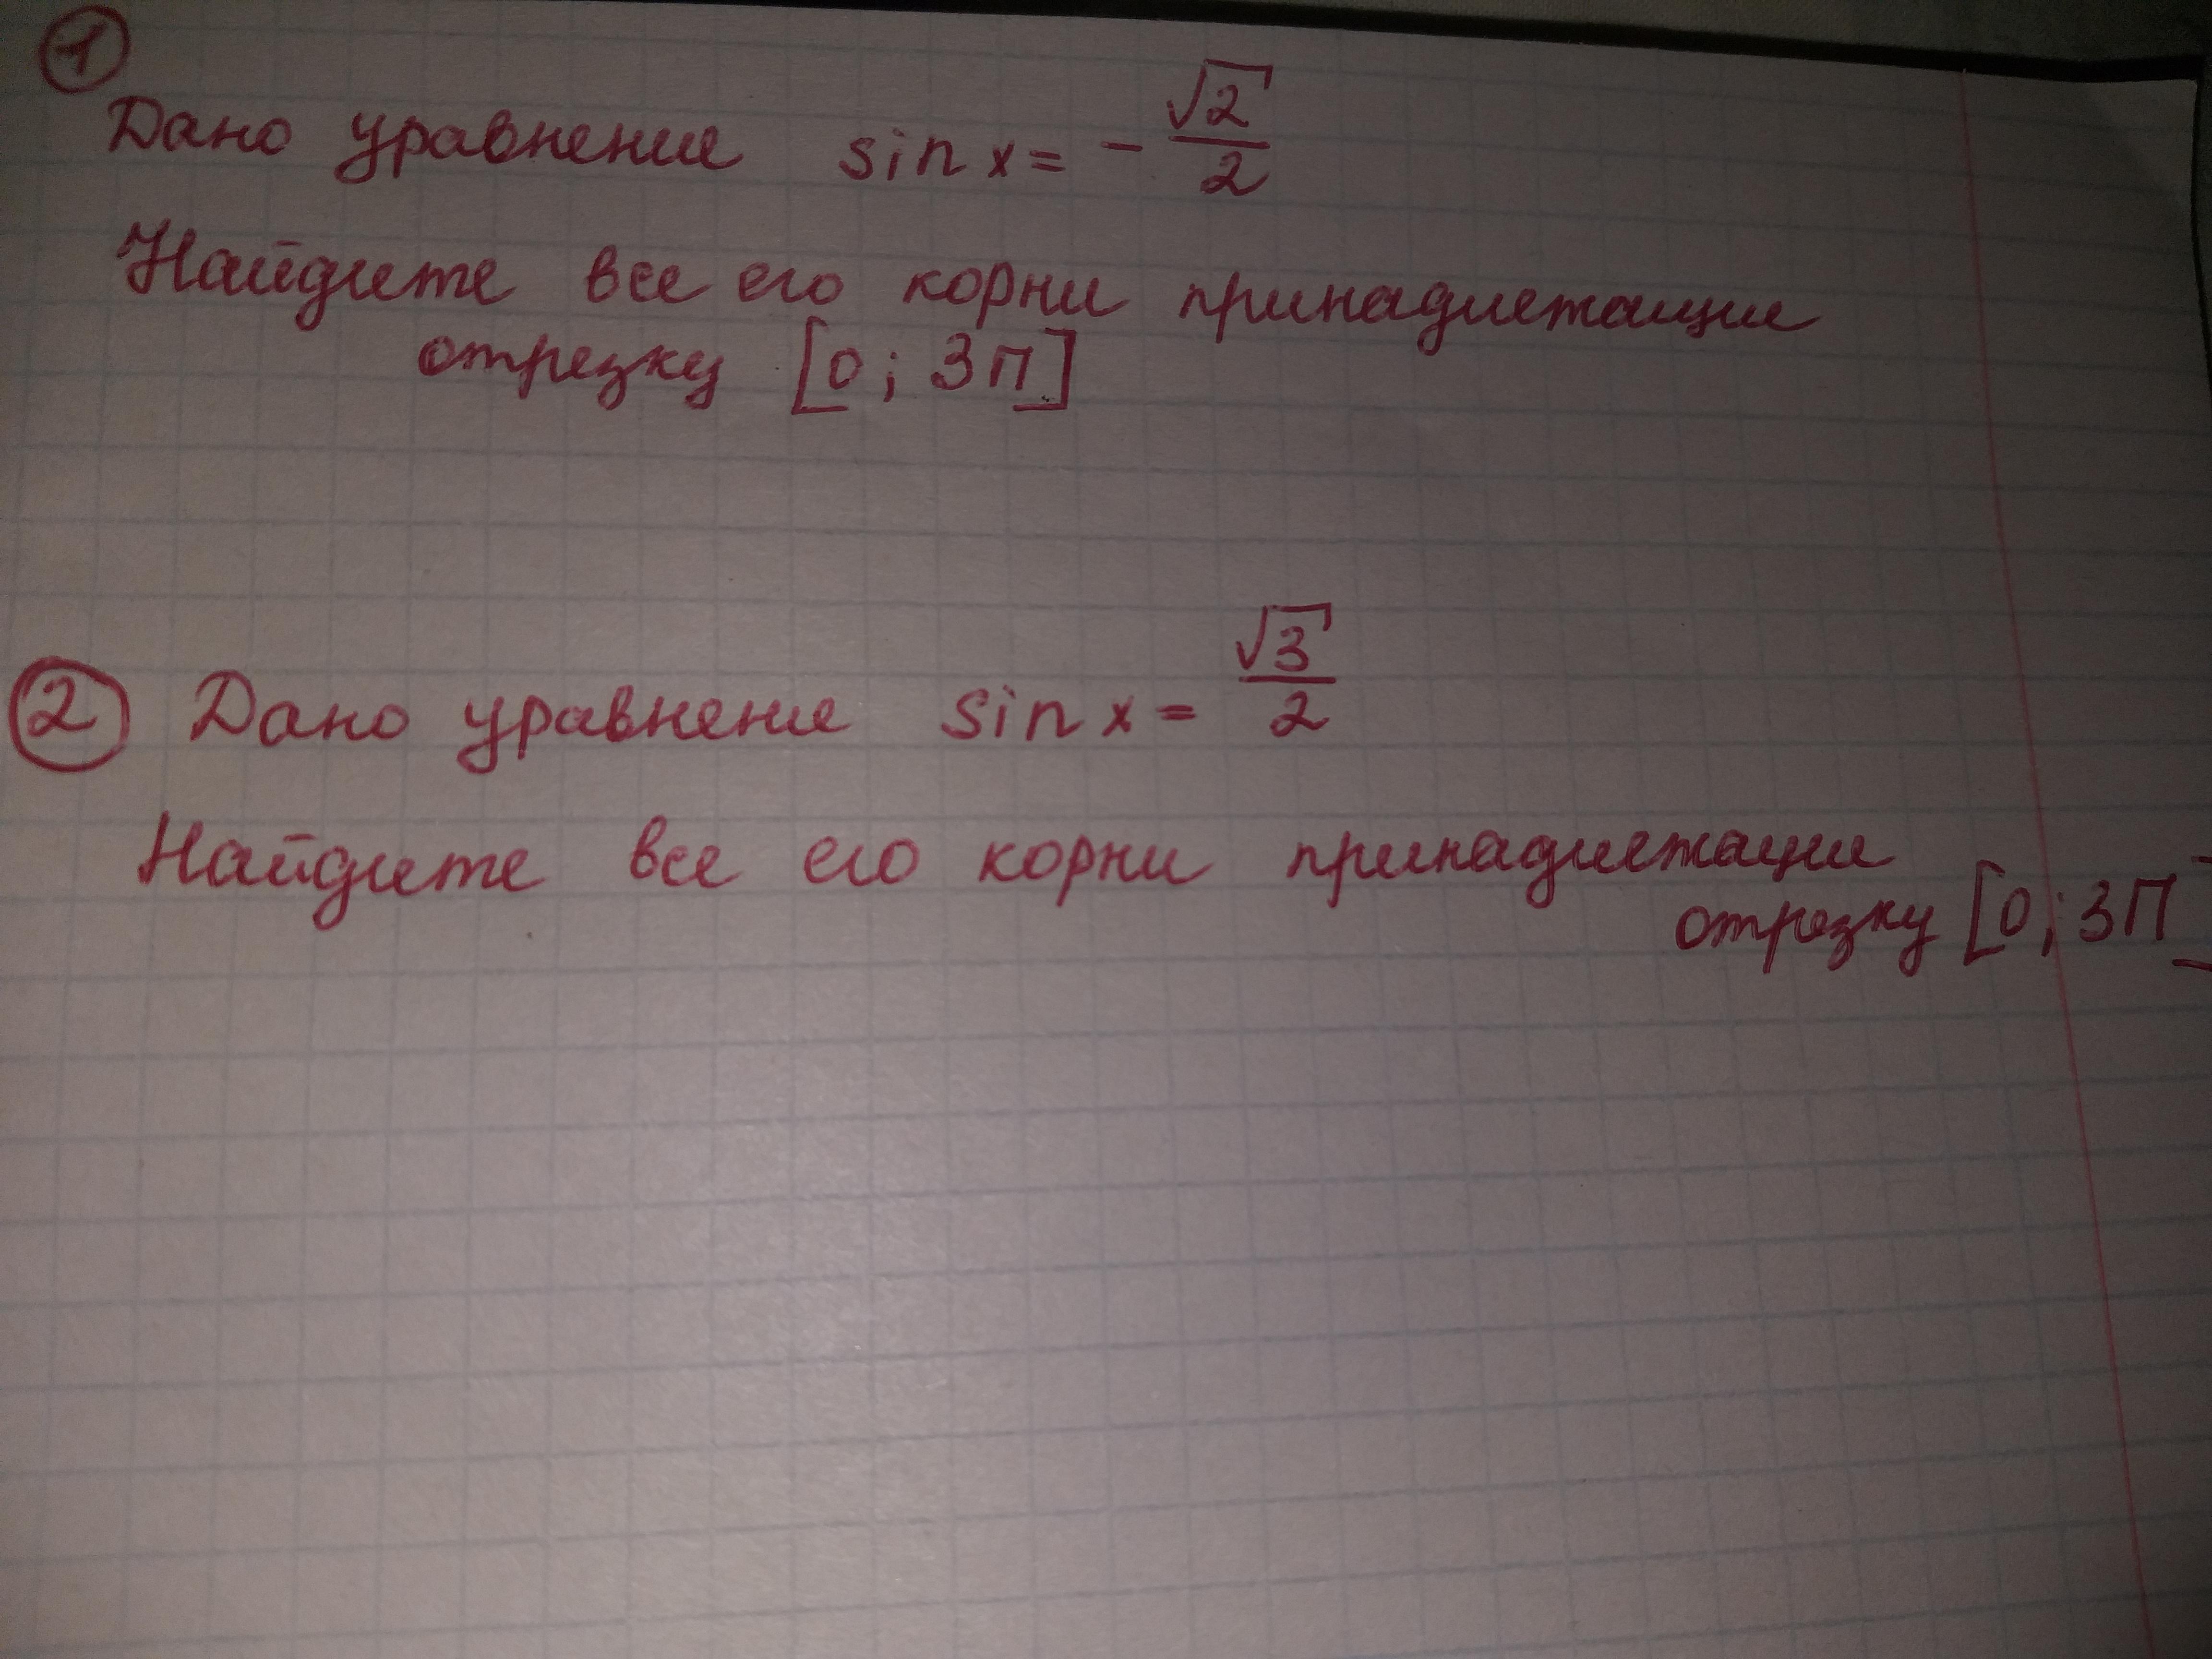 1
Дано уравнение sin x = - √2/2
Найдите все его корни принадлежащие
отрезку [0; 3П]
2 Дано уравнение sin x = √3/2
Найдите все его корни принадлежащие
отрезку [0; 3П]